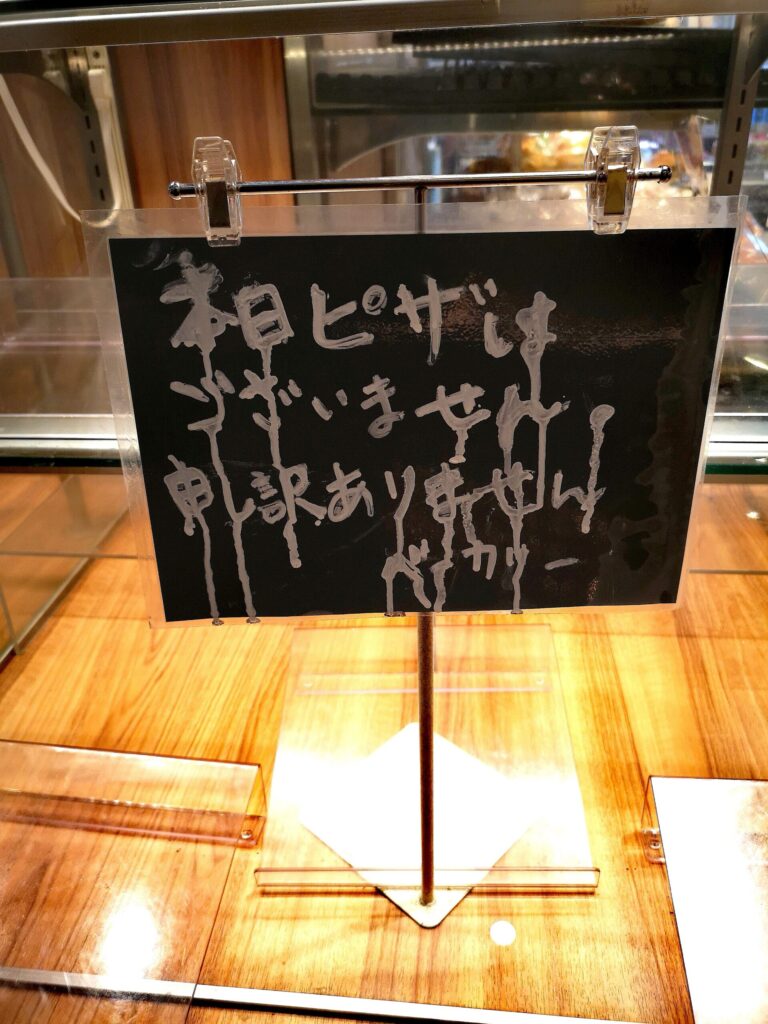 本日ピザは
ございません!
申し訳ありません
ベーカリー